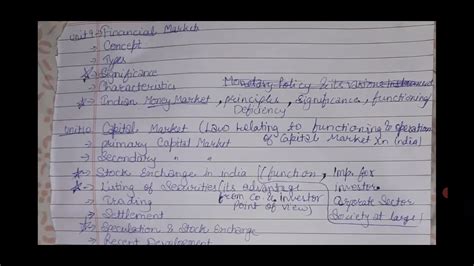 Unit 9 - Financial Market
→ Concept
→ Types
→ Significance
→ Characteristics Monetary Policy & its various Instrument
→ Indian Money Market, principles, significance, functioning,
Deficiency
Unit 10 Capital Market (Law relating to functioning & operation
→ primary Capital Market of Capital Market in India)
→ Secondary " "
→ Stock Exchange in India (function, Imp. for
→ Listing of Securities (its advantage Investor,
→ Trading from Co & investor Corporate Sector
→ Settlement point of view) Society at large)
→ Speculation & Stock Exchange
→ Recent Development